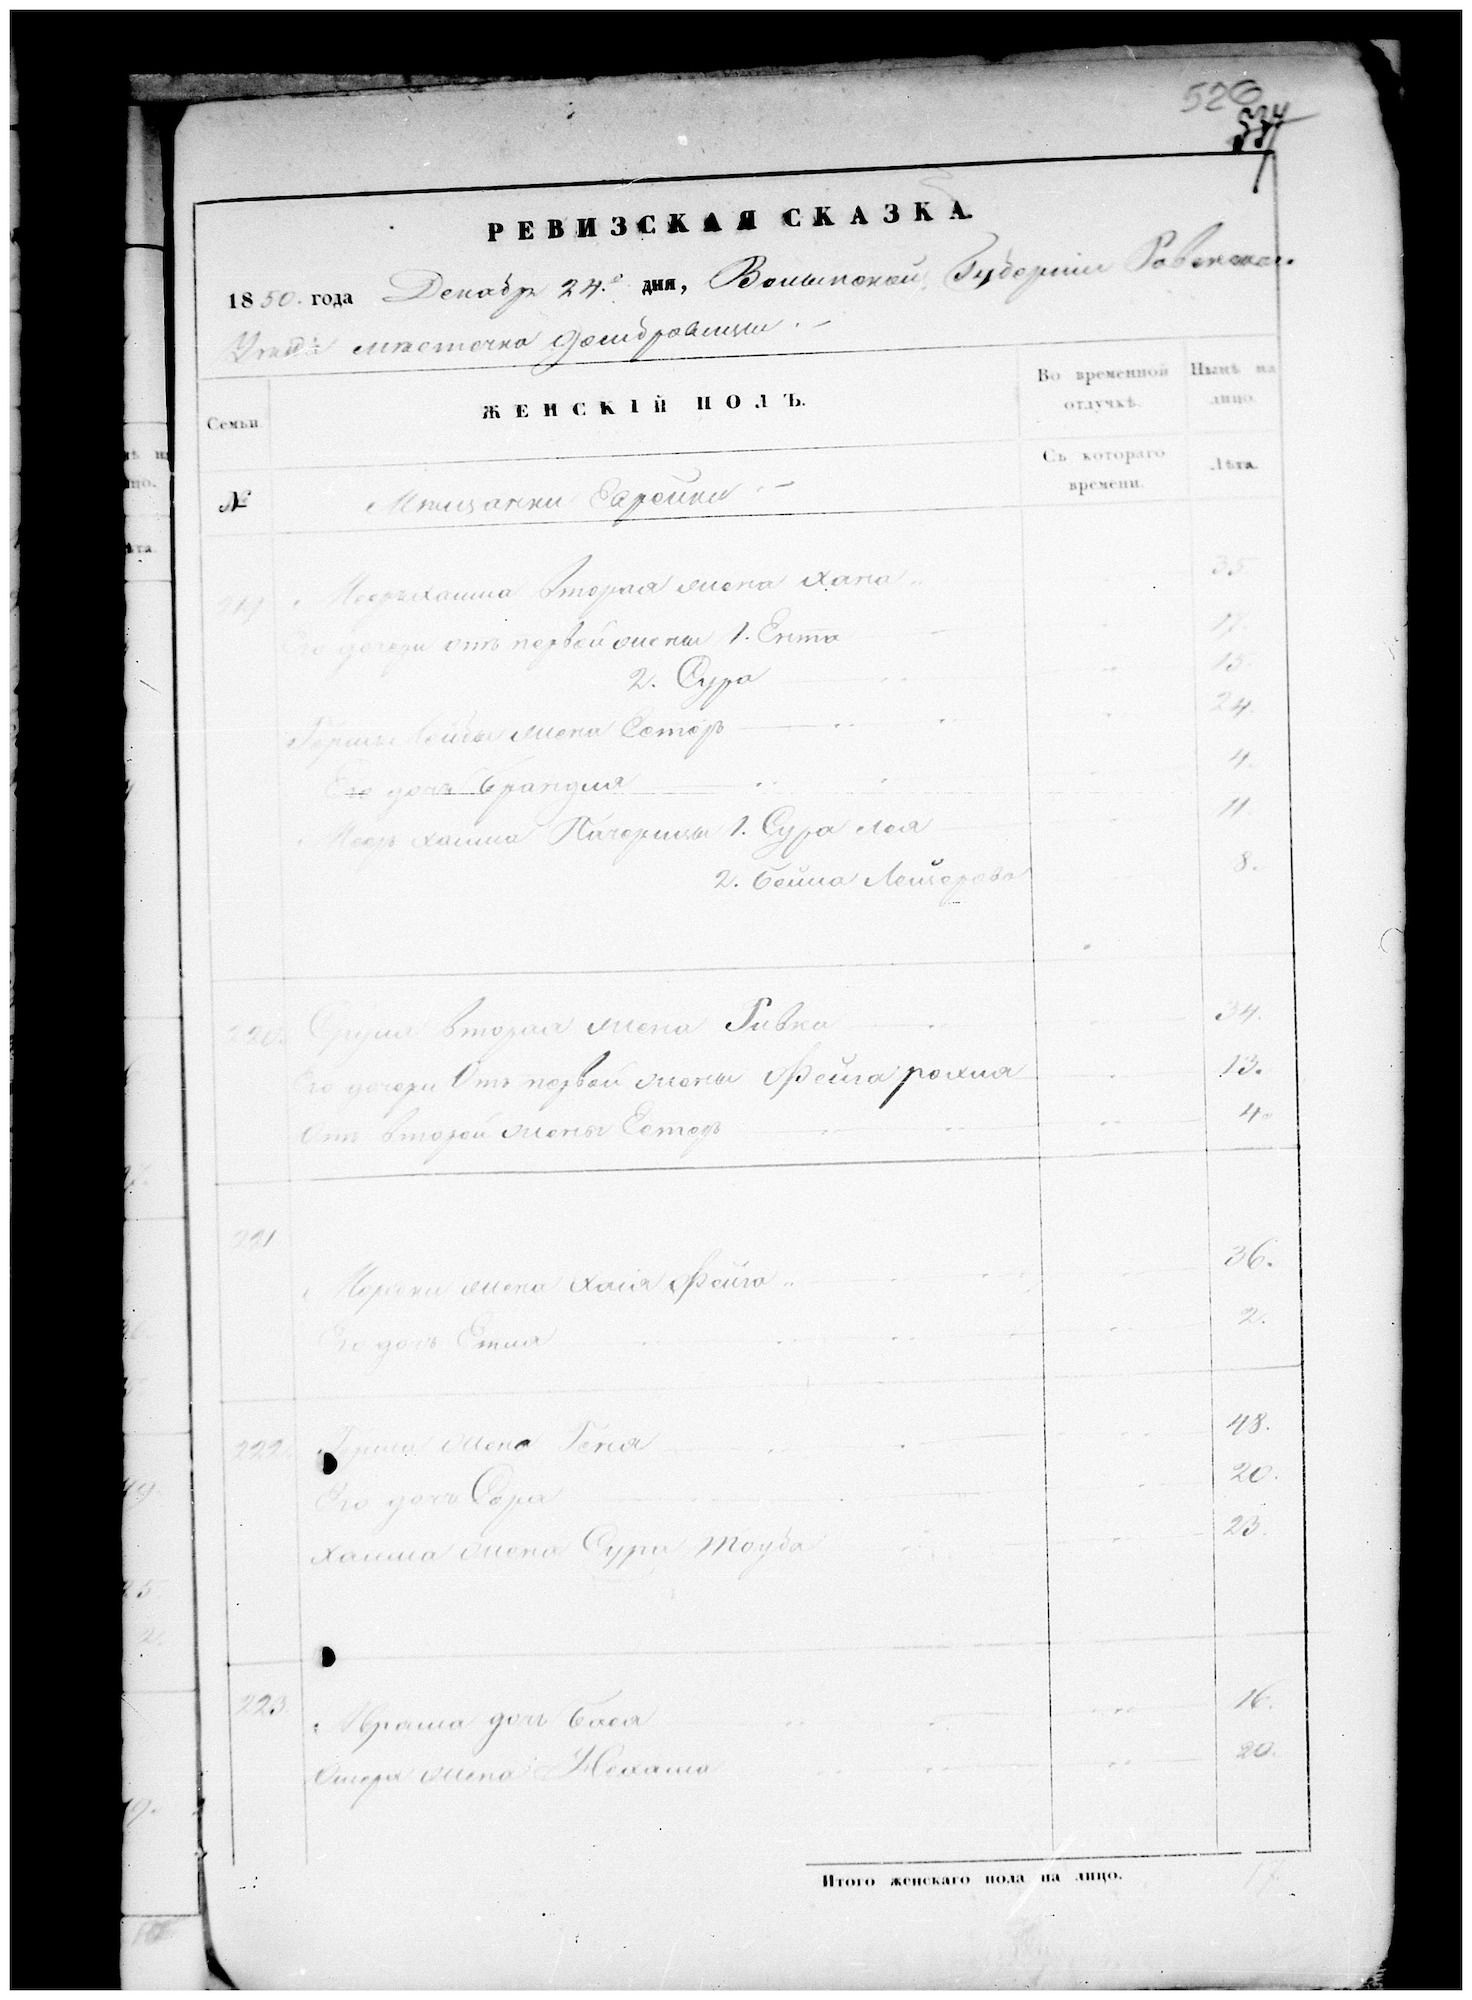 526
РЕВИЗСКАЯ СКАЗКА.
1850. года Декабр 24.го дня, Волынской Губерніи Ровенскаго
Уезда местечка Домбровицы
Семьи
ЖЕНСКІЙ ПОЛЪ.
Во временной отлучкѣ.
Нынѣ на лицо.
№
Мещанки Еврейки
Съ котораго времени.
Лѣта.
219 хаима вторая жена Хана 35
Его дочери отъ первой жены 1. Ента 17.
2. Сура 15.
Герша Лейбы жена Естеръ 24.
Его дочь Брандля 4.
хаима 1. Сура Лея 11.
2. Бейла 8.
220. Сруля вторая жена Ривка 34.
Его дочери Отъ первой жены Фейга рохля 13.
Отъ второй жены Естеръ 4.
221
Мордки жена Хаія Фейга 36.
Его дочь Етля 2.
222. Герша жена Геня 48.
Его дочь Сора 20.
Хаима жена Сура Тауба 23.
223. Абрама дочь Бася 16.
жена Нехама 20.
Итого женскаго пола на лицо. 17